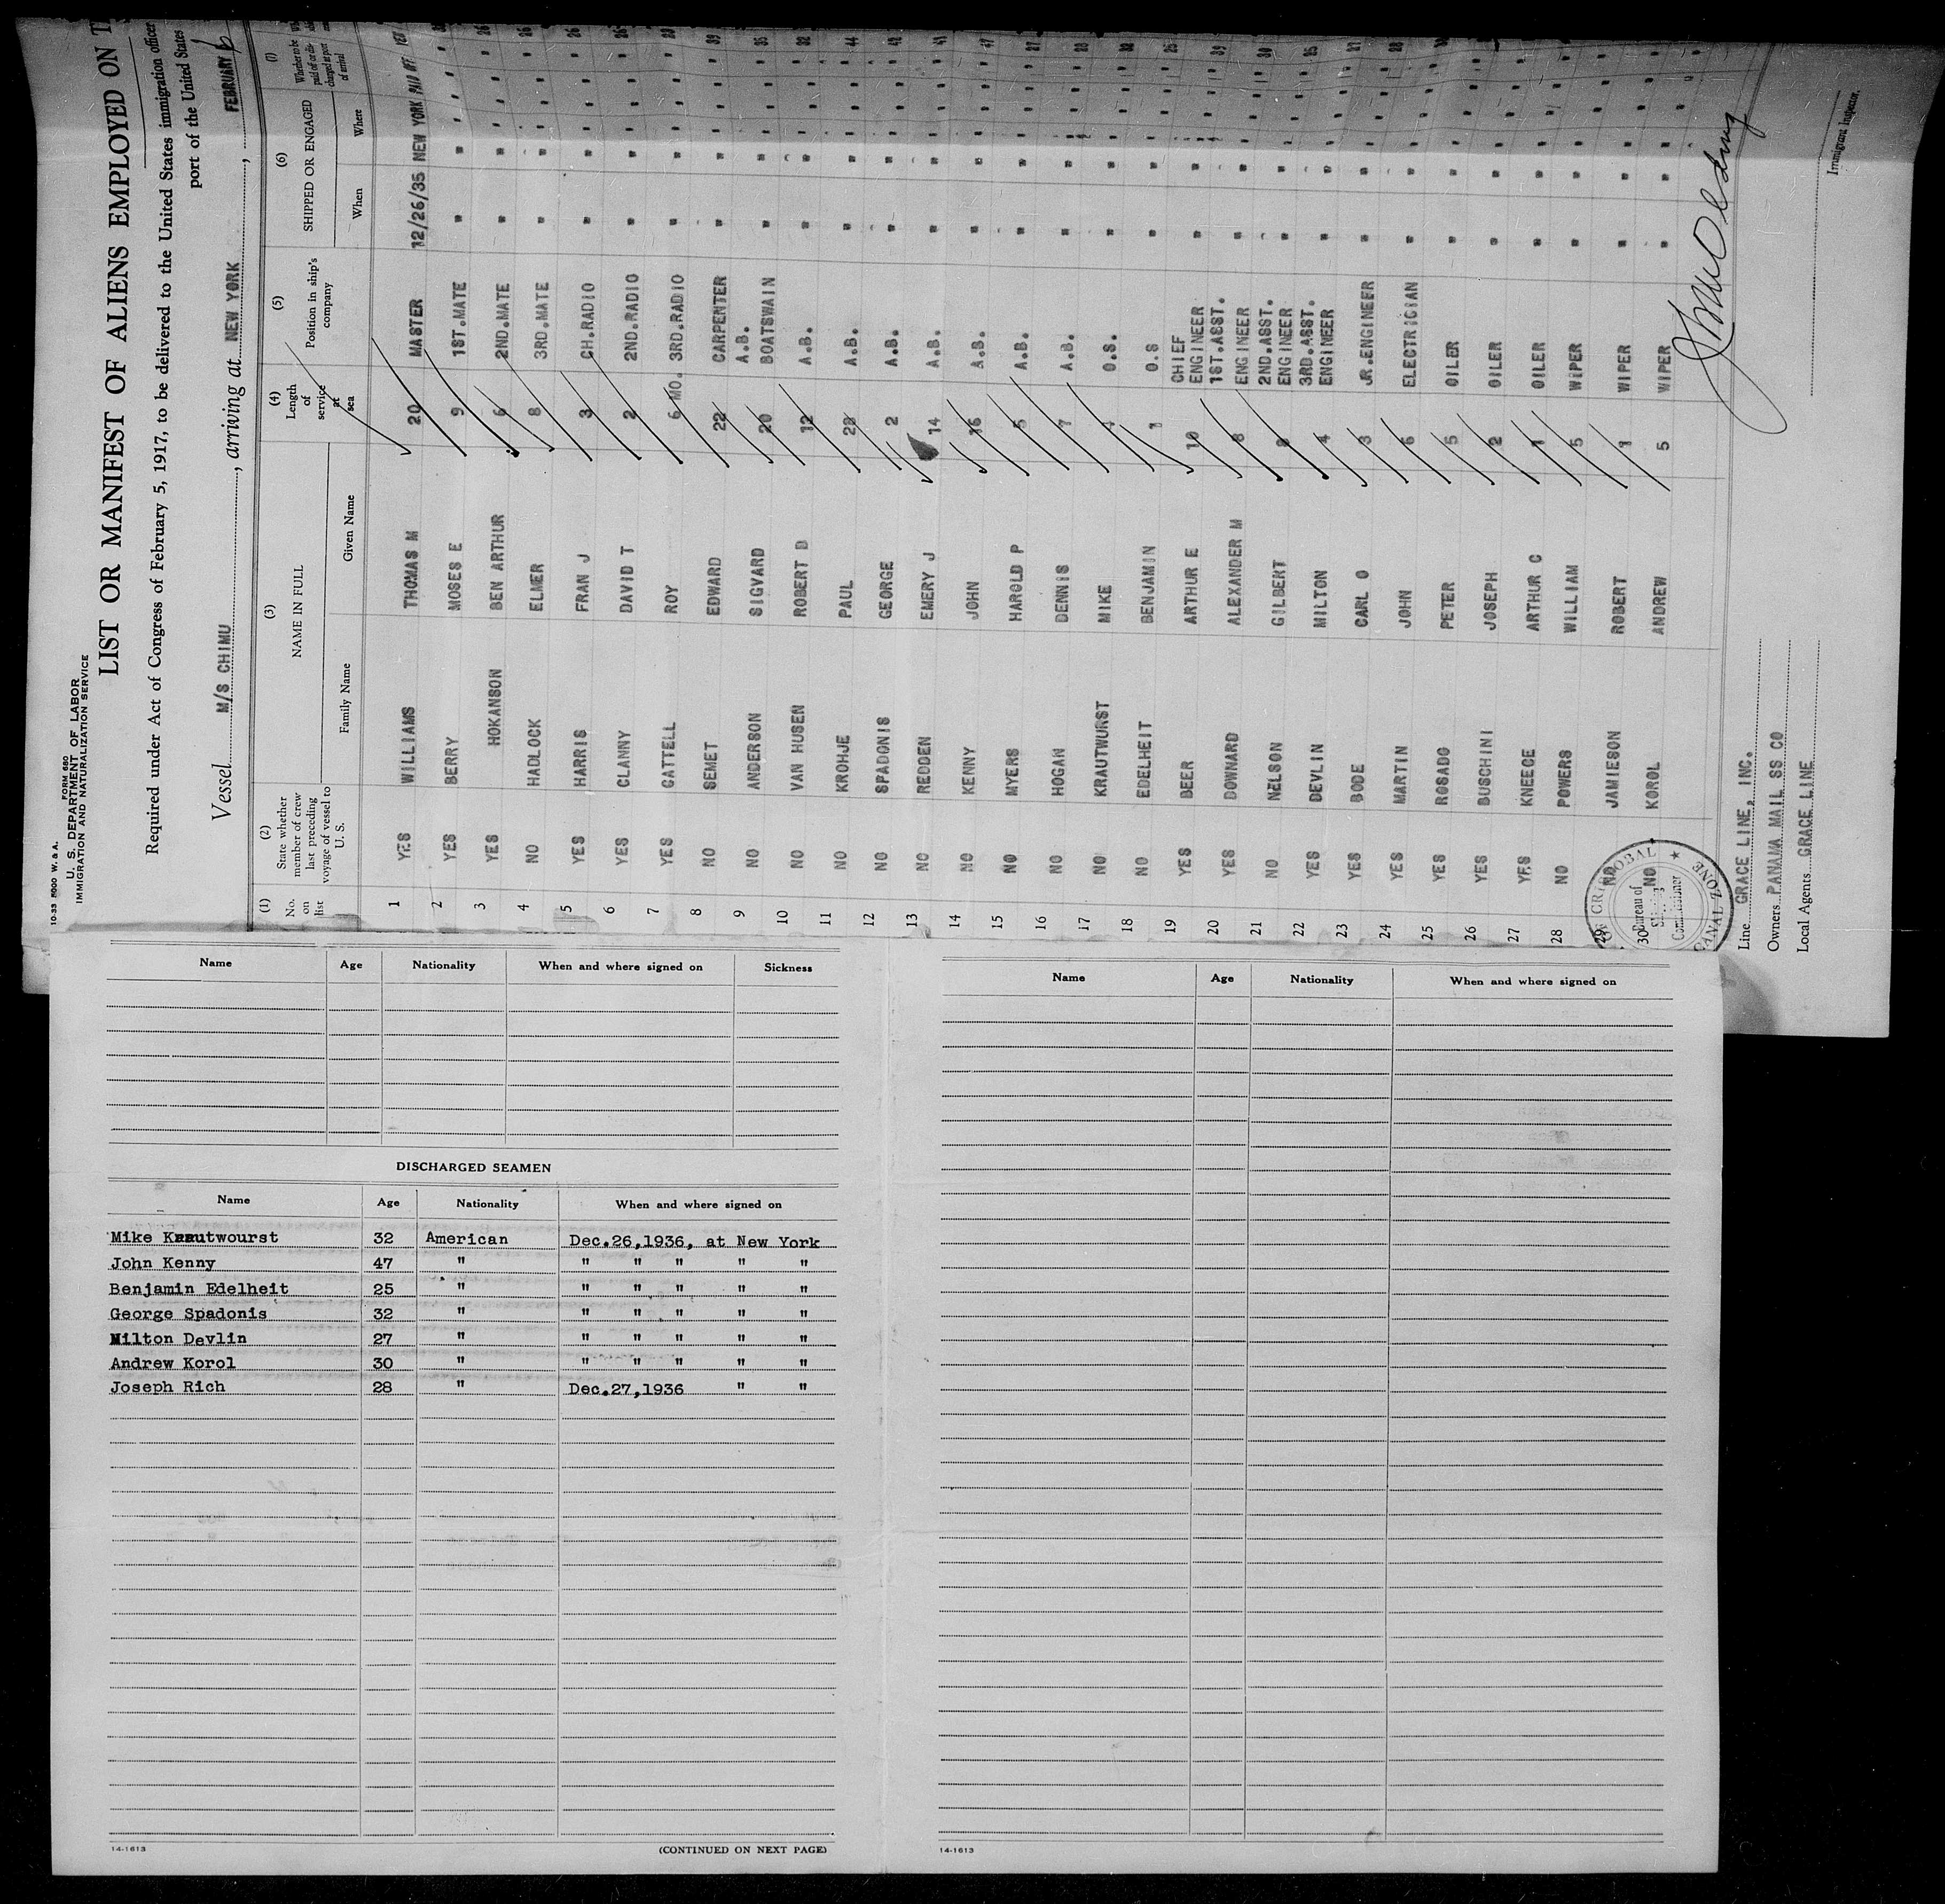 10-33 5000 W. & A.
FORM 680
U. S. DEPARTMENT OF LABOR
IMMIGRATION AND NATURALIZATION SERVICE
LIST OR MANIFEST OF ALIENS EMPLOYED ON
Required under Act of Congress of February 5, 1917, to be delivered to the United States immigration officer
port of the United States
Vessel M/S CHIMU, arriving at NEW YORK, FEBRUARY
(1) No. on list (2) State whether member of crew last preceding voyage of vessel to U. S. (3) NAME IN FULL Family Name Given Name (4) Length of service at sea (5) Position in ship's company (6) SHIPPED OR ENGAGED When Where (7) Whether to be paid off or discharged at port of arrival
1 YES WILLIAMS THOMAS M 20 MASTER 12/26/35 NEW YORK PAID OFF
2 YES BERRY MOSES E 9 1ST.MATE " "
3 YES HOKANSON BEN ARTHUR 6 2ND.MATE " "
4 NO HADLOCK ELMER 8 3RD.MATE " "
5 YES HARRIS FRAN J 3 CH.RADIO " "
6 YES CLANNY DAVID T 2 2ND.RADIO " "
7 YES CATTELL ROY 6 MO. 3RD.RADIO " "
8 NO SEMET EDWARD 22 CARPENTER A.B. " "
9 NO ANDERSON SIGVARD 20 BOATSWAIN " "
10 NO VAN HUSEN ROBERT D 12 A.B. " "
11 NO KROHJE PAUL A.B. " "
12 NO SPADONIS GEORGE 2 A.B. " "
13 NO REDDEN EMERY J 14 A.B. " "
14 NO KENNY JOHN 16 A.B. " "
15 NO MYERS HAROLD P 5 A.B. " "
16 NO HOGAN DENNIS 7 A.B. " "
17 NO KRAUTWURST MIKE O.S. " "
18 NO EDELHEIT BENJAMIN 1 O.S " "
19 YES BEER ARTHUR E 10 CHIEF ENGINEER " "
20 YES DOWNARD ALEXANDER M 8 1ST.ASST. ENGINEER " "
21 NO NELSON GILBERT 2ND.ASST. ENGINEER " "
22 YES DEVLIN MILTON 4 3RD.ASST. ENGINEER " "
23 YES BODE CARL O 3 JR.ENGINEER " "
24 YES MARTIN JOHN 6 ELECTRICIAN " "
25 YES ROSADO PETER 5 OILER " "
26 YES BUSCHINI JOSEPH 2 OILER " "
27 YES KNEECE ARTHUR C 1 OILER " "
28 NO POWERS WILLIAM 5 WIPER " "
29 NO JAMIESON ROBERT 1 WIPER " "
30 NO KOROL ANDREW 5 WIPER " "
CRISTOBAL CANAL ZONE Bureau of Shipping Commissioner
Line GRACE LINE, INC.
Owners PANAMA MAIL SS CO
Local Agents GRACE LINE
Immigrant Inspector.
Name Age Nationality When and where signed on Sickness
DISCHARGED SEAMEN
Name Age Nationality When and where signed on
Mike Krautwourst 32 American Dec.26,1936, at New York
John Kenny 47 " " " " " "
Benjamin Edelheit 25 " " " " " "
George Spadonis 32 " " " " " "
Milton Devlin 27 " " " " " "
Andrew Korol 30 " " " " " "
Joseph Rich 28 " Dec.27,1936 " "
14-1613
(CONTINUED ON NEXT PAGE)
Name Age Nationality When and where signed on
14-1613